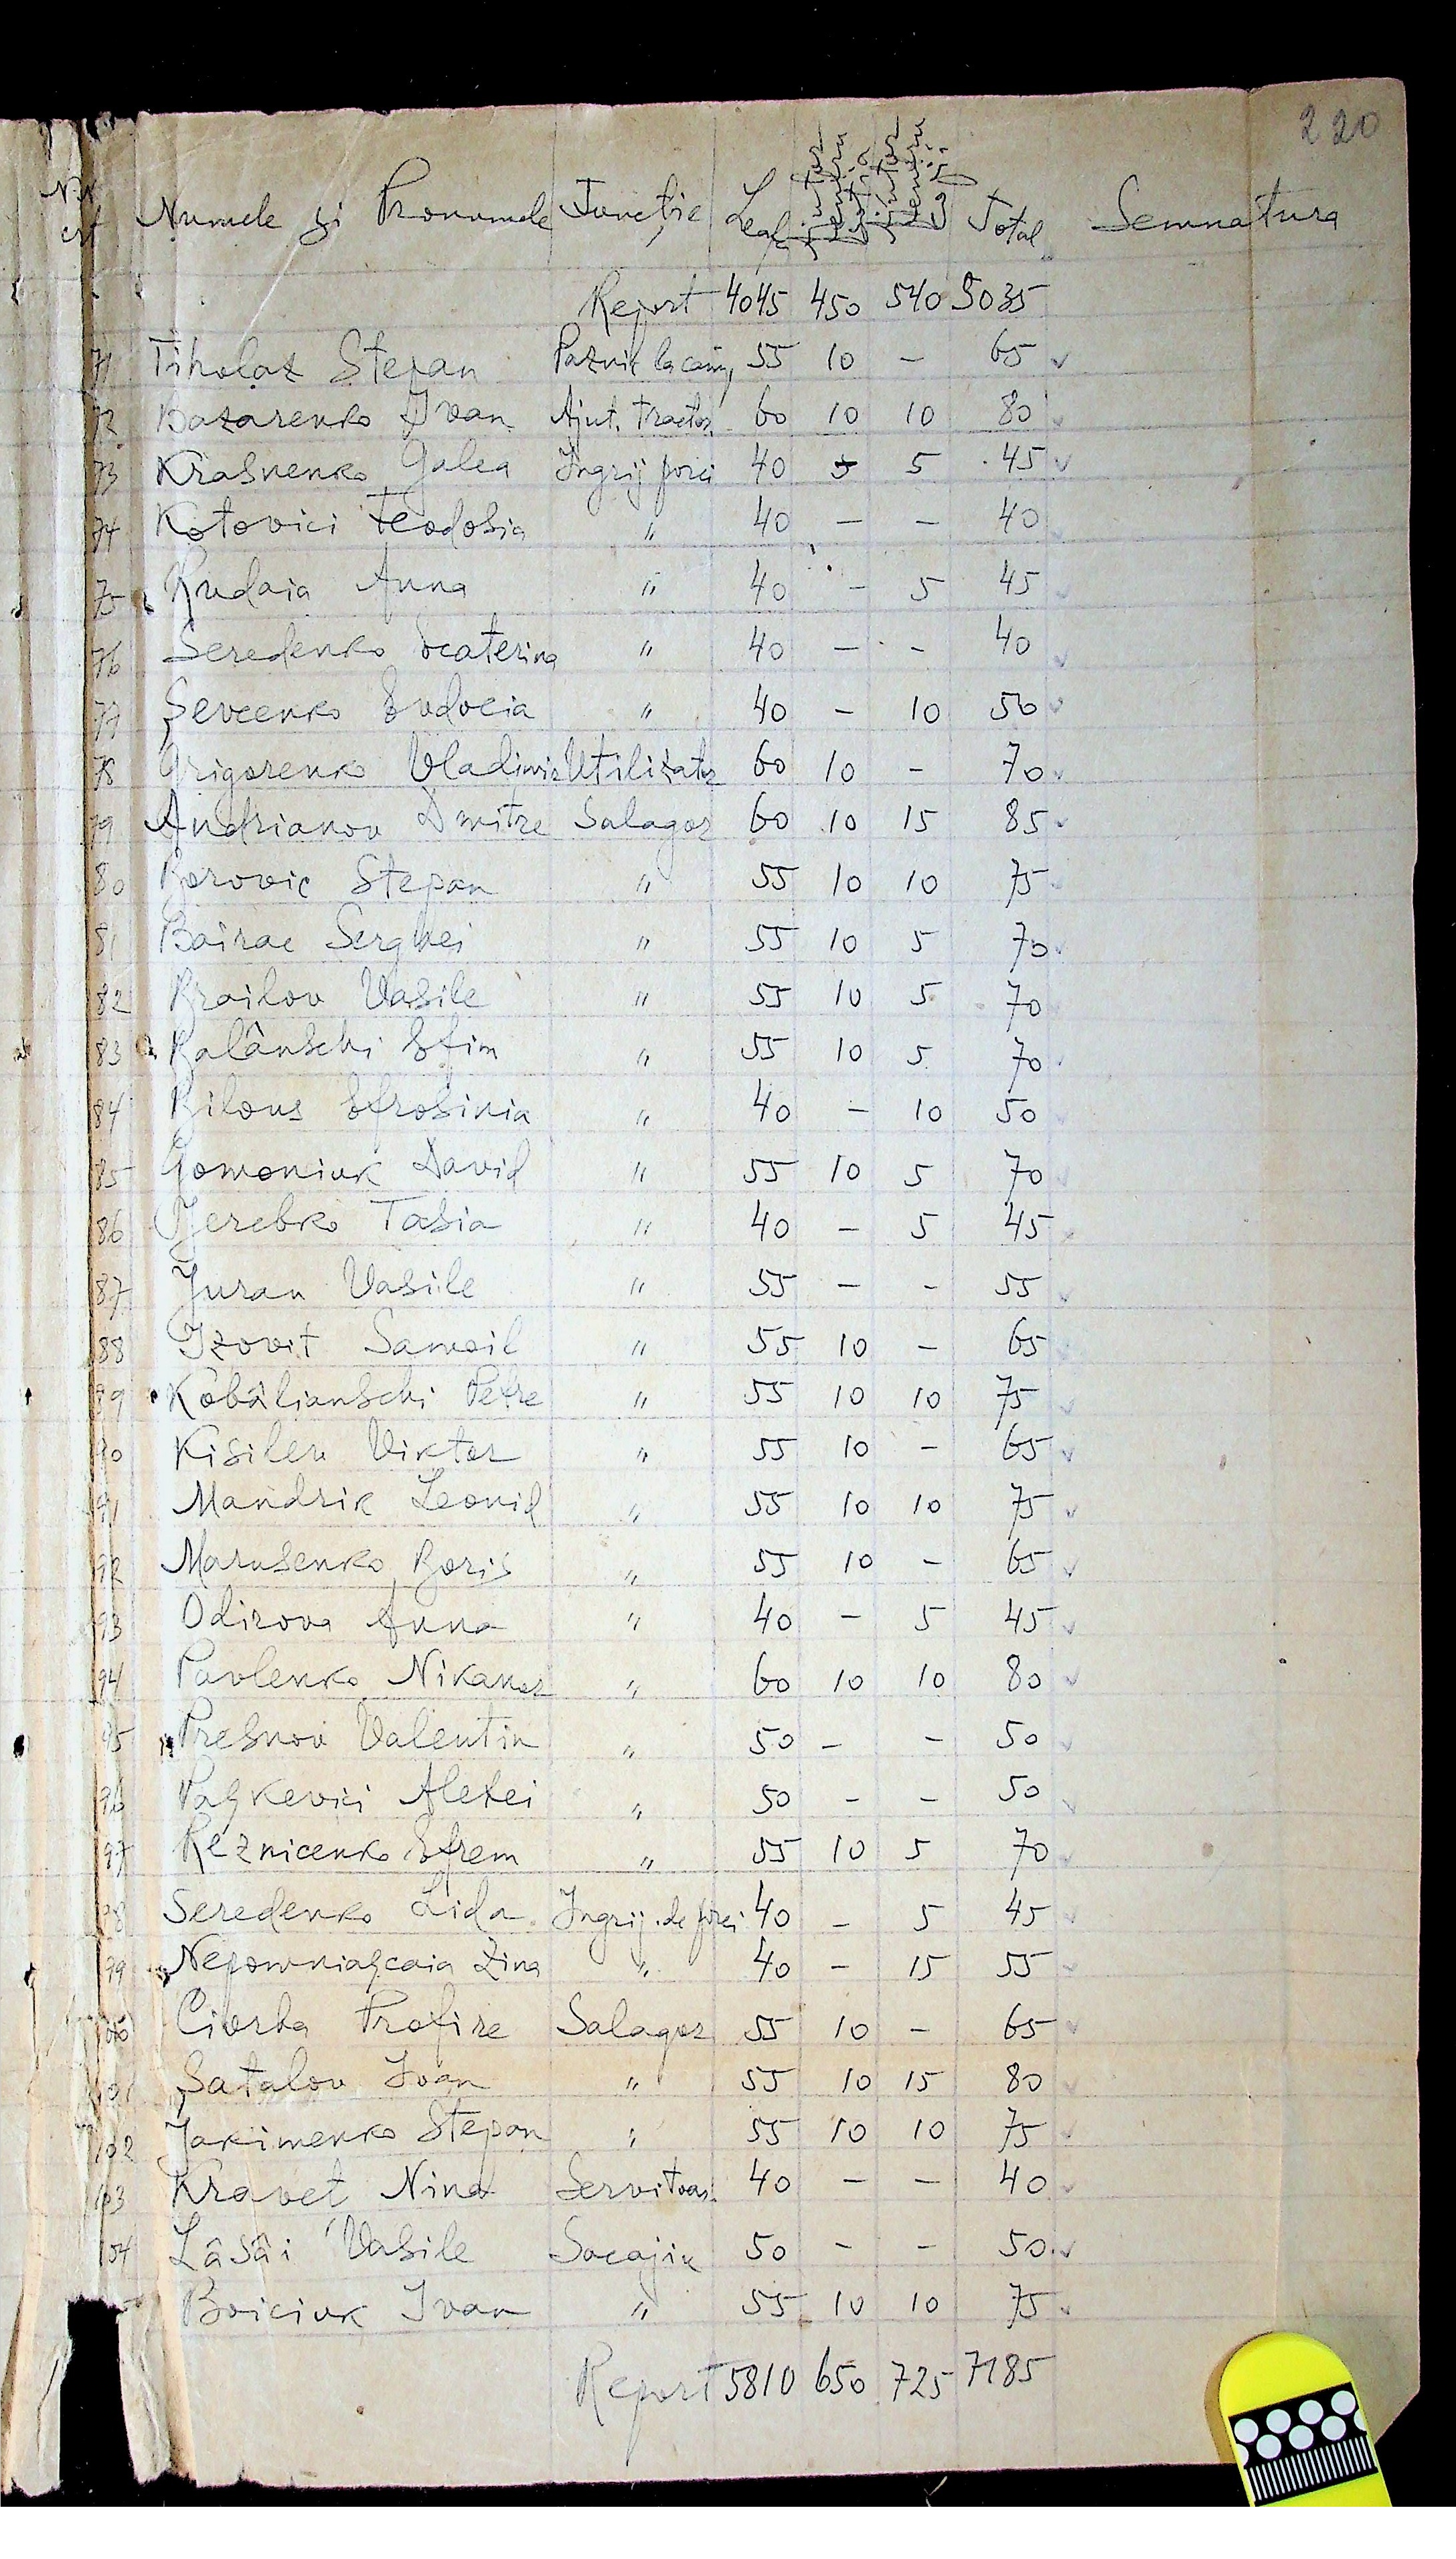 220
Nr crt Numele și Pronumele Funcție Leaf Total Semnatura
Report 4045 450 540 5035
71 Tiholaz Stepan Paznic la câmp 55 10 - 65
72 Bazarenko Ivan Ajut. tractor 60 10 10 80
73 Krasnenko Galea Ingrij porci 40 5 45
74 Kotovici Teodosia " 40 - - 40
75 Rudaia Anna " 40 - 5 45
76 Seredenko Ecaterina " 40 - - 40
77 Șevcenko Evdocia " 40 - 10 50
78 Grigorenko Vladimir Utilizator 60 10 - 70
79 Andrianov Dmitre Salagor 60 10 15 85
80 Borovic Stepan " 55 10 10 75
81 Bairac Serghei " 55 10 5 70
82 Brailov Vasile " 55 10 5 70
83 Balânschi Efim " 55 10 5 70
84 Bilous Efrosinia " 40 - 10 50
85 Gomoniuk David " 55 10 5 70
86 Jerebko Tasia " 40 - 5 45
87 Juran Vasile " 55 - - 55
88 Izovit Samoil " 55 10 - 65
89 Kobâlianschi Petre " 55 10 10 75
90 Kisileu Viktor " 55 10 - 65
91 Mandrik Leonid " 55 10 10 75
92 Marusenko Boris " 55 10 - 65
93 Odirova Anna " 40 - 5 45
94 Pavlenko Nikanor " 60 10 10 80
95 Presnov Valentin " 50 - - 50
96 Pașkevici Alexei " 50 - - 50
97 Reznicenko Efrem " 55 10 5 70
98 Seredenko Lida Ingrij. de porci 40 - 5 45
99 Nepomniașcaia Zina " 40 - 15 55
100 Ciorba Profire Salagor 55 10 - 65
101 Șatalov Ivan " 55 10 15 80
102 Jakimenko Stepan " 55 10 10 75
103 Kravet Nina Servitoar. 40 - - 40
104 Lâsâi Vasile Socajiu 50 - - 50
Boiciuk Ivan " 55 10 10 75
Report 5810 650 725 7185